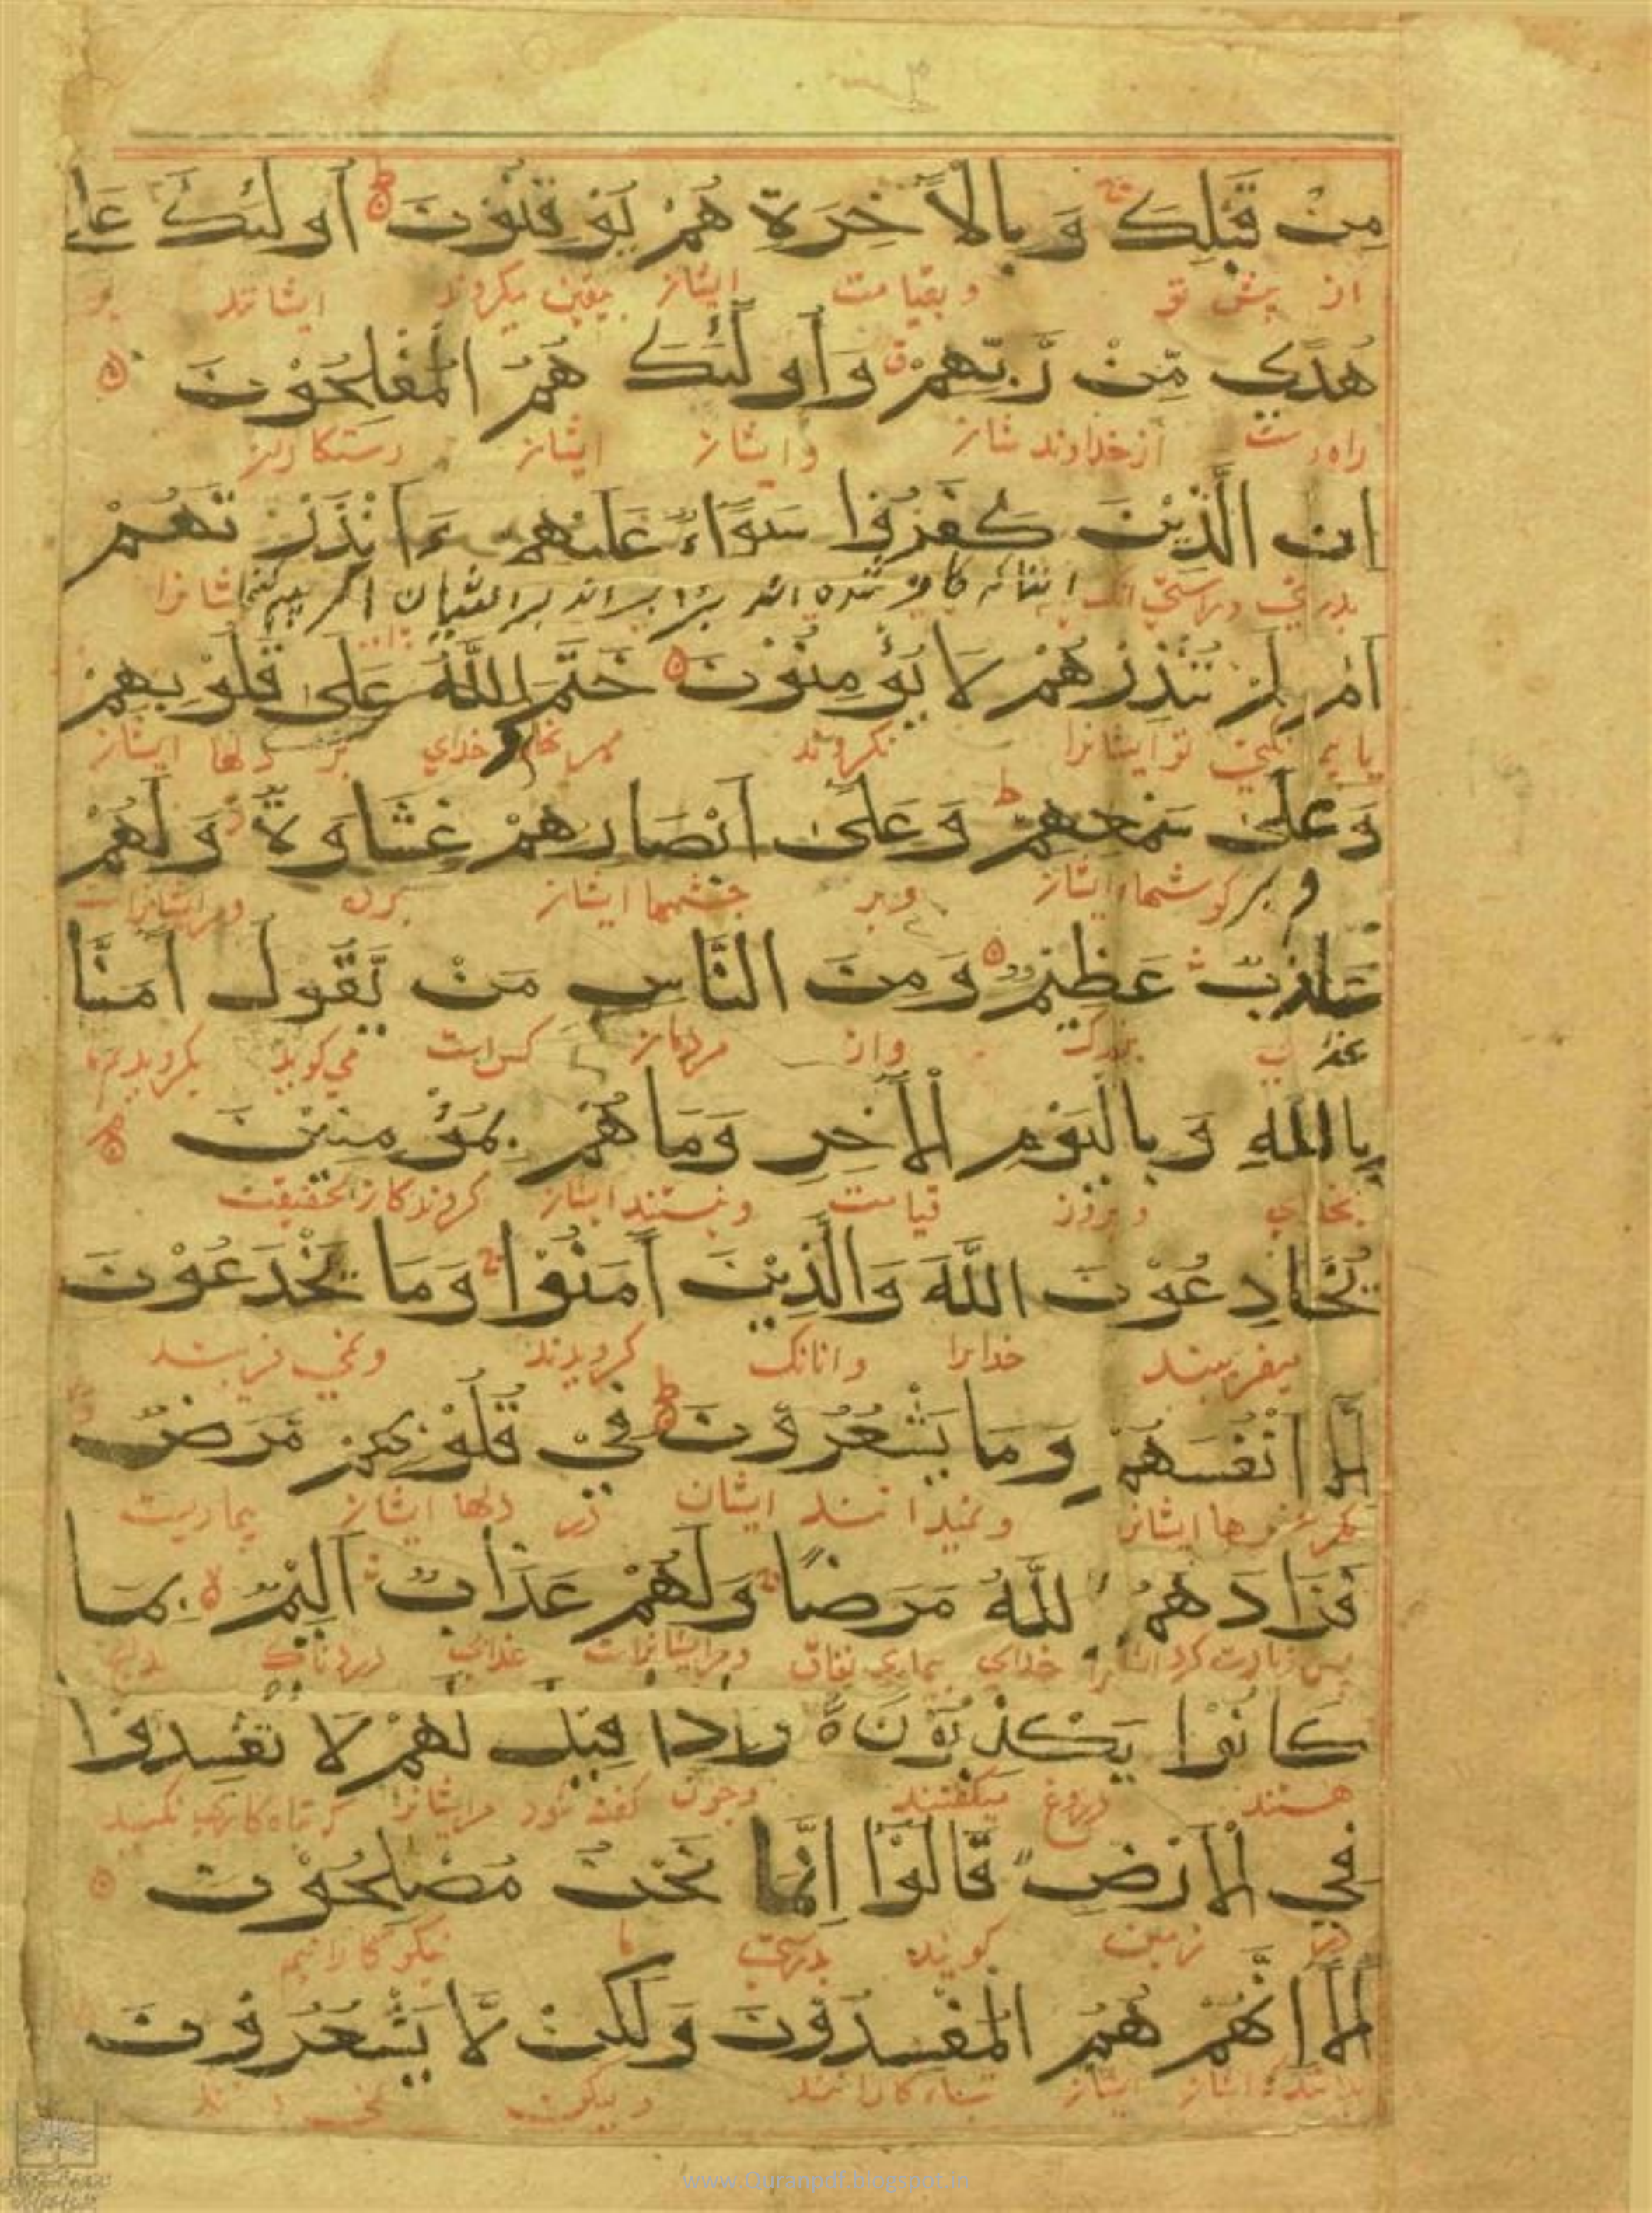 مِنْ قَبْلِكَ وَبِالْاٰخِرَةِ هُمْ يُوْقِنُوْنَ اُولٰئِكَ عَلٰى
از پیش تو وبقیامت ایشان بیقین میکروند ایشانند بر
هُدًى مِّنْ رَّبِّهِمْ وَاُولٰئِكَ هُمُ الْمُفْلِحُوْنَ
راه راست از خداوند شان وایشان ایشان رستکاران
اِنَّ الَّذِيْنَ كَفَرُوْا سَوَاءٌ عَلَيْهِمْ ءَاَنْذَرْتَهُمْ
بدرستی وراستی آنانکه کافر شده اند برابر اند بر ایشان اکر بیم کنی ایشانرا
اَمْ لَمْ تُنْذِرْهُمْ لَا يُؤْمِنُوْنَ خَتَمَ اللّٰهُ عَلٰى قُلُوْبِهِمْ
یا بیم نکنی تو ایشانرا نکروند مهر نهاد خدای بر دلها ایشان
وَعَلٰى سَمْعِهِمْ وَعَلٰى اَبْصَارِهِمْ غِشَاوَةٌ وَلَهُمْ
وبر کوشها ایشان وبر چشمها ایشان پرده ومرایشانراست
عَذَابٌ عَظِيْمٌ وَمِنَ النَّاسِ مَنْ يَّقُوْلُ اٰمَنَّا
عذاب بزرک واز مردمان کس است می کوید بکرویدیم ما
بِاللّٰهِ وَبِالْيَوْمِ الْاٰخِرِ وَمَا هُمْ بِمُؤْمِنِيْنَ
بخدای وبروز قیامت ونیستند ایشان کروندکان بحقیقت
يُخَادِعُوْنَ اللّٰهَ وَالَّذِيْنَ اٰمَنُوْا وَمَا يَخْدَعُوْنَ
میفریبند خدایرا وآنانک کرویدند ونمی فریبند
اِلَّا اَنْفُسَهُمْ وَمَا يَشْعُرُوْنَ فِيْ قُلُوْبِهِمْ مَّرَضٌ
مکر تنها ایشانرا ونمیدانند ایشان در دلها ایشان بیماریست
فَزَادَهُمُ اللّٰهُ مَرَضًا وَلَهُمْ عَذَابٌ اَلِيْمٌ بِمَا
پس زیادت کرد خدای بیماری نفاق ومرایشانراست عذاب دردناک بدانچ
كَانُوْا يَكْذِبُوْنَ وَاِذَا قِيْلَ لَهُمْ لَا تُفْسِدُوْا
هستند دروغ میکفتند وچون کفته شود مرایشانرا که تباه کاری مکنید
فِي الْاَرْضِ قَالُوْا اِنَّمَا نَحْنُ مُصْلِحُوْنَ
در زمین کویند بدرستی ما نیکوکارانیم
اَلَا اِنَّهُمْ هُمُ الْمُفْسِدُوْنَ وَلٰكِنْ لَّا يَشْعُرُوْنَ
بدانید که ایشان ایشان تباه کارانند ولیکن
www.Quranpdf.blogspot.in